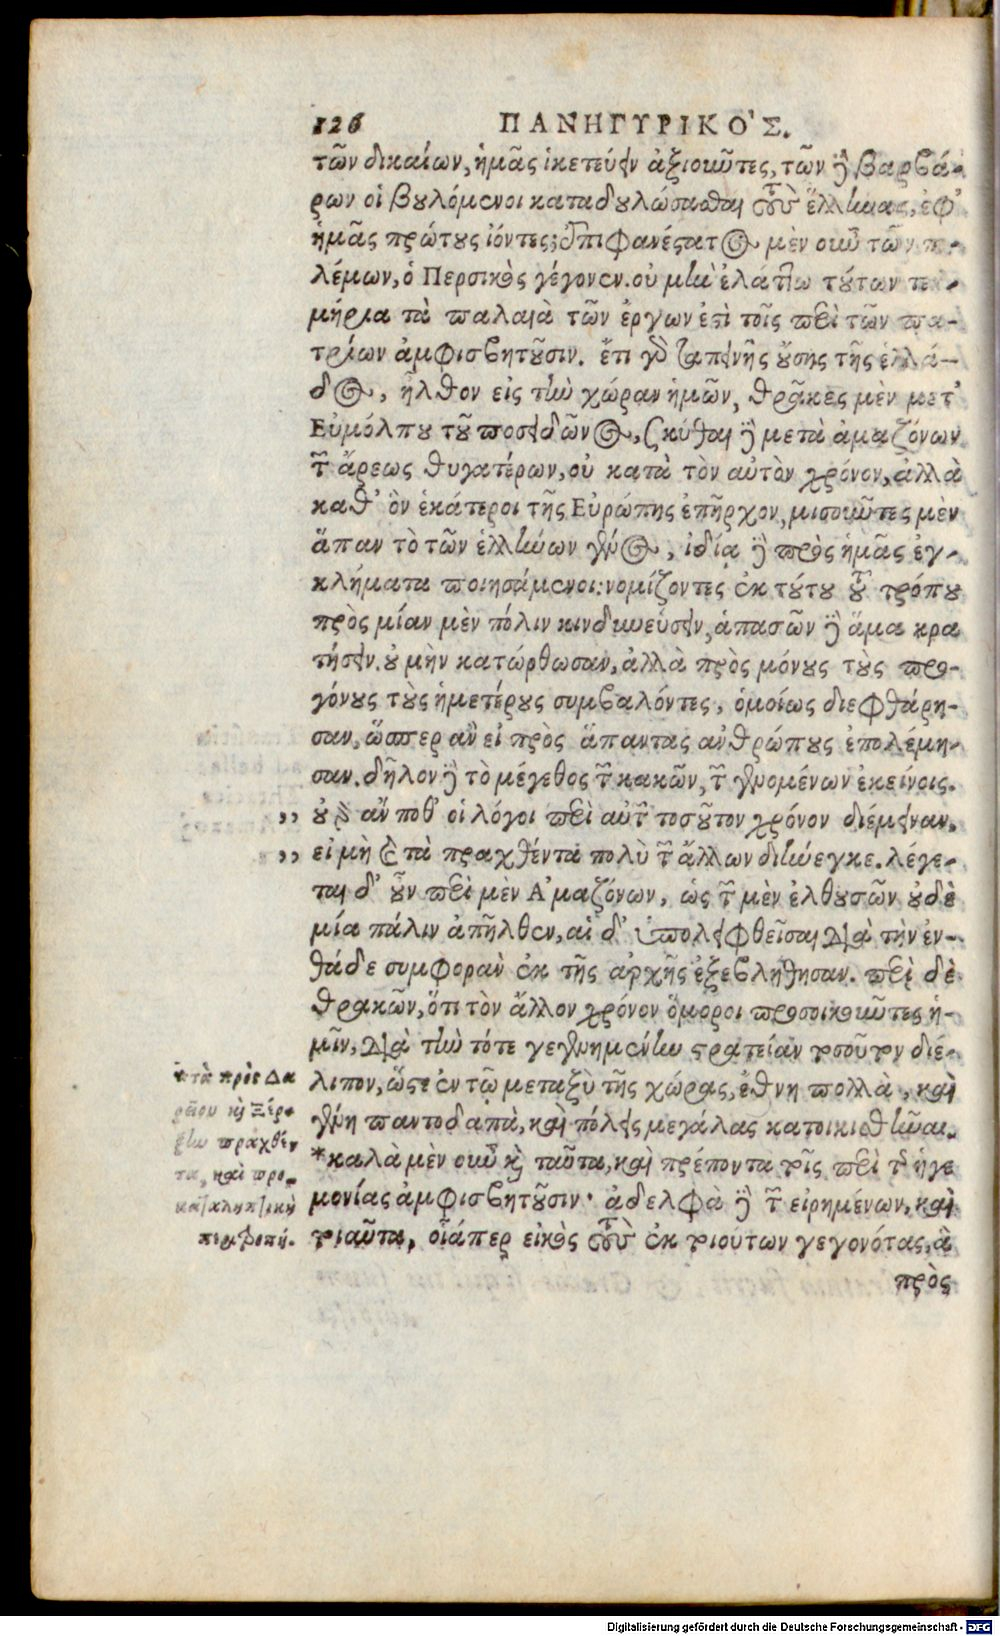 126 ΠΑΝΗΓΥΡΙΚΟ'Σ.
τῶν δικαίων, ἡμᾶς ἱκετεύειν ἀξιοῦντες, τῶν δὲ βαρβά-
ρων οἱ βουλόμενοι καταδουλώσασθαι τοὺς ἕλληνας, ἐφ'
ἡμᾶς πρώτους ἰόντες; ἐπιφανέστατος μὲν οὖν τῶν πο-
λέμων, ὁ Περσικὸς γέγονεν. οὐ μὴν ἐλάττω τούτων τεκ-
μήρια τὰ παλαιὰ τῶν ἔργων ἐστὶ τοῖς περὶ τῶν πα-
τρίων ἀμφισβητοῦσιν. ἔτι γὰρ ταπεινῆς οὔσης τῆς ἑλλά-
δος, ἦλθον εἰς τὴν χώραν ἡμῶν, θρᾶκες μὲν μετ'
Εὐμόλπου τοῦ ποσειδῶνος, σκύθαι δὲ μετὰ ἀμαζόνων
τῶν ἄρεως θυγατέρων, οὐ κατὰ τὸν αὐτὸν χρόνον, ἀλλὰ
καθ' ὃν ἑκάτεροι τῆς Εὐρώπης ἐπῆρχον, μισοῦντες μὲν
ἅπαν τὸ τῶν ἑλλήνων γένος, ἰδίᾳ δὲ πρὸς ἡμᾶς ἐγ-
κλήματα ποιησάμενοι: νομίζοντες ἐκ τούτου τοῦ τρόπου
πρὸς μίαν μὲν πόλιν κινδυνεύσειν, ἁπασῶν δὲ ἅμα κρα
τήσειν. οὐ μὴν κατώρθωσαν, ἀλλὰ πρὸς μόνους τοὺς προ-
γόνους τοὺς ἡμετέρους συμβαλόντες, ὁμοίως διεφθάρη-
σαν, ὥσπερ ἂν εἰ πρὸς ἅπαντας ἀνθρώπους ἐπολέμη-
σαν. δῆλον δὲ τὸ μέγεθος τῶν κακῶν, τῶν γενομένων ἐκείνοις.
,, οὐ γὰρ ἄν ποθ' οἱ λόγοι περὶ αὐτῶν τοσοῦτον χρόνον διέμειναν,
,, εἰ μὴ καὶ τὰ πραχθέντα πολὺ τῶν ἄλλων διήνεγκε. λέγε-
ται δ' οὖν περὶ μὲν Ἀμαζόνων, ὡς τῶν μὲν ἐλθουσῶν οὐδὲ
μία πάλιν ἀπῆλθεν, αἱ δ' ὑπολειφθεῖσαι διὰ τὴν ἐν-
θάδε συμφορὰν ἐκ τῆς ἀρχῆς ἐξεβλήθησαν. περὶ δὲ
θρακῶν, ὅτι τὸν ἄλλον χρόνον ὅμοροι προσοικοῦντες ἡ-
μῖν, διὰ τὴν τότε γεγενημένην στρατείαν τοσοῦτον διέ-
λιπον, ὥστε ἐν τῷ μεταξὺ τῆς χώρας, ἔθνη πολλὰ, καὶ
γένη παντοδαπὰ, καὶ πόλεις μεγάλας κατοικισθῆναι.
*καλὰ μὲν οὖν καὶ ταῦτα, καὶ πρέποντα τοῖς περὶ τῆς ἡγε
μονίας ἀμφισβητοῦσιν· ἀδελφὰ δὲ τῶν εἰρημένων, καὶ
τοιαῦτα, οἷάπερ εἰκὸς τοὺς ἐκ τοιούτων γεγονότας, ἃ
πρὸς
*τὰ πρὸς Δα
ρεῖον καὶ Ξέρ-
ξην πραχθέν
τα, καὶ προ-
πεμφοπή.
Digitalisierung gefördert durch die Deutsche Forschungsgemeinschaft - DFG